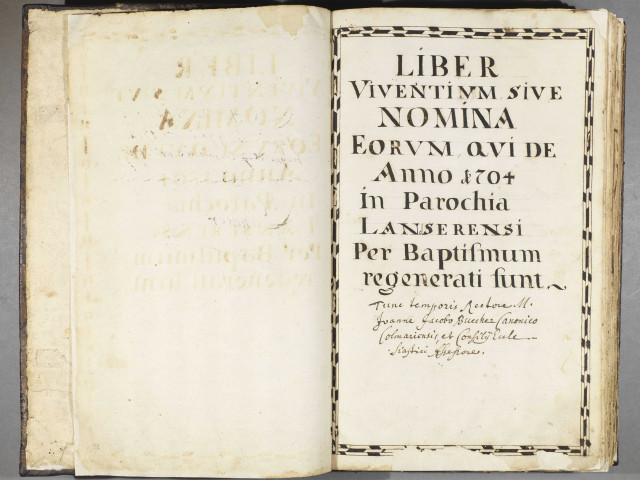 LIBER
VIVENTIVM SIVE
NOMINA
EORVM, QVI DE
Anno 1704
in Parochia
LANSERENSI
Per Baptismum
regenerati sunt
Tunc temporis Rectore M.
Joanne Jacobo Buecher Canonico
Colmariensi, et Consilij Eccle
siastici Assessore.